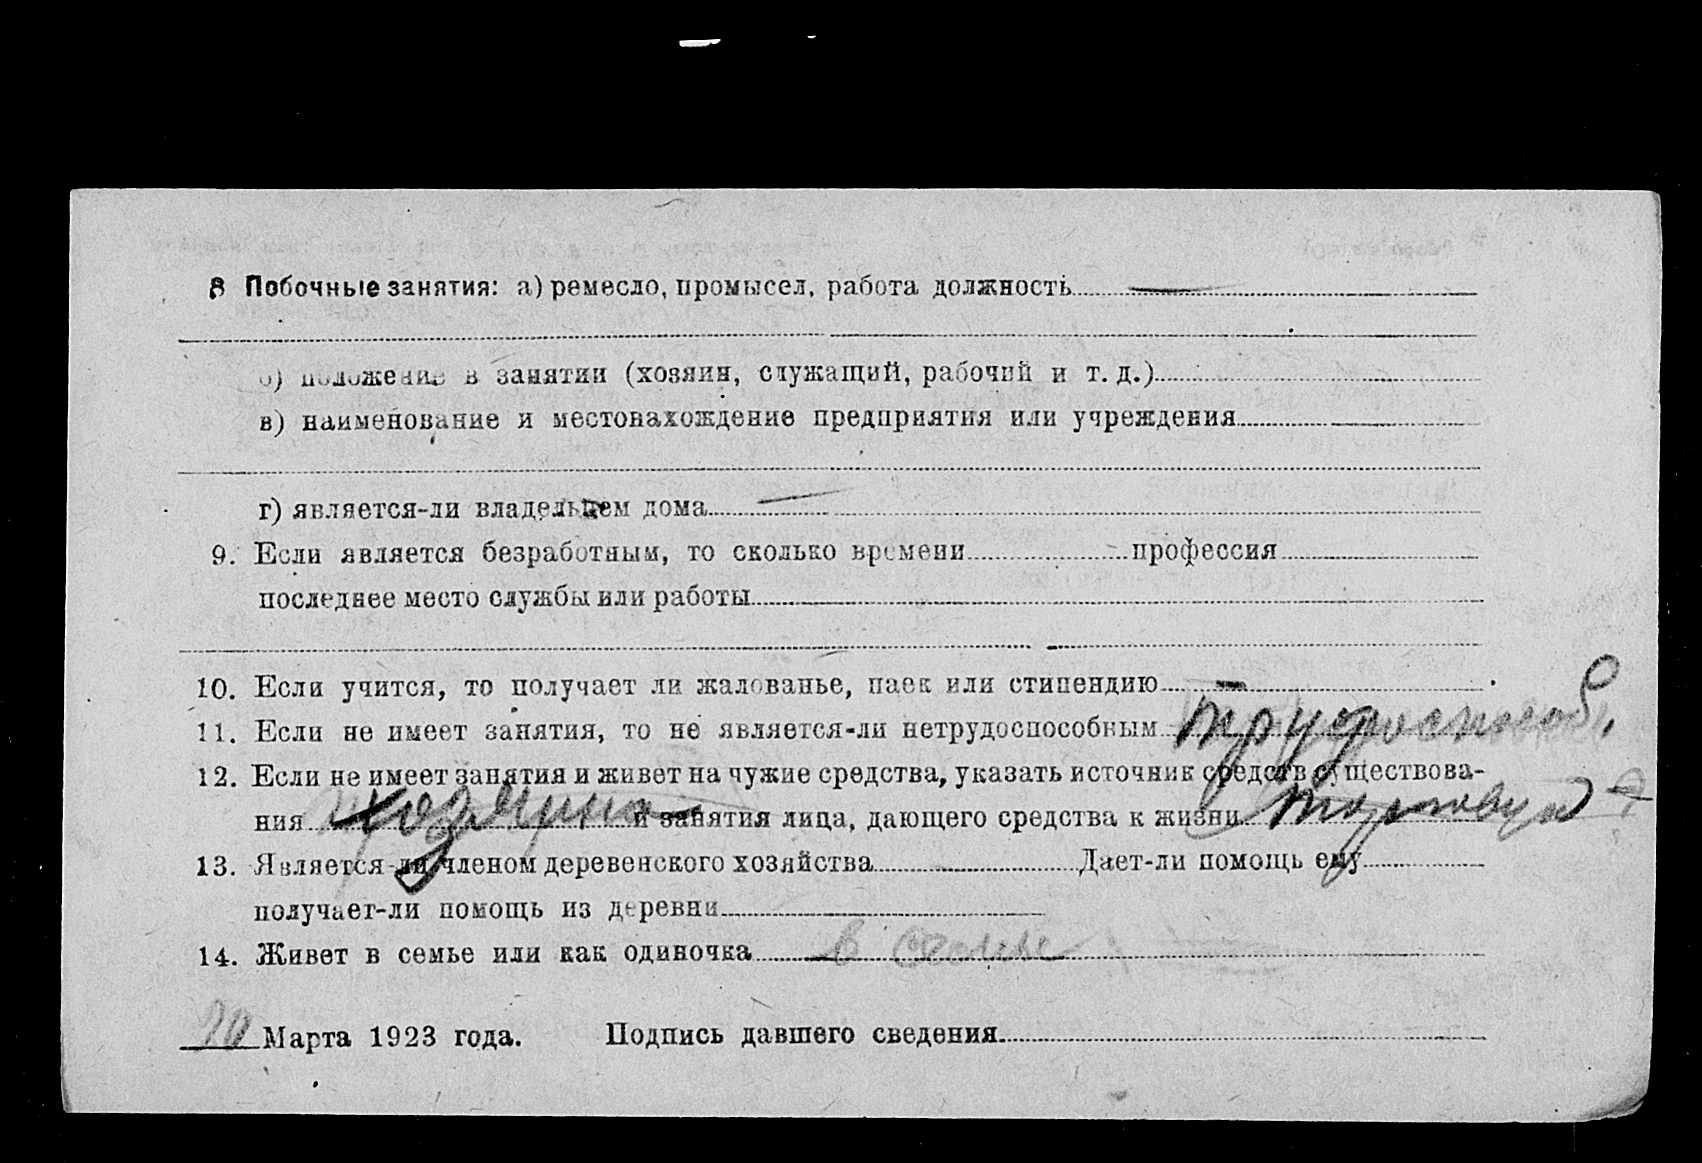 8 Побочные занятия: а) ремесло, промысел, работа должность —
б) положение в занятии (хозяин, служащий, рабочий и т. д.)
в) наименование и местонахождение предприятия или учреждения
г) является-ли владельцем дома —
9. Если является безработным, то сколько времени профессия
последнее место службы или работы
10. Если учится, то получает ли жалованье, паек или стипендию —
11. Если не имеет занятия, то не является-ли нетрудоспособным трудоспособ.
12. Если не имеет занятия и живет на чужие средства, указать источник средств существова-
ния и занятия лица, дающего средства к жизни
13. Является-ли членом деревенского хозяйства Дает-ли помощь ему
получает-ли помощь из деревни
14. Живет в семье или как одиночка в семье
Марта 1923 года. Подпись давшего сведения